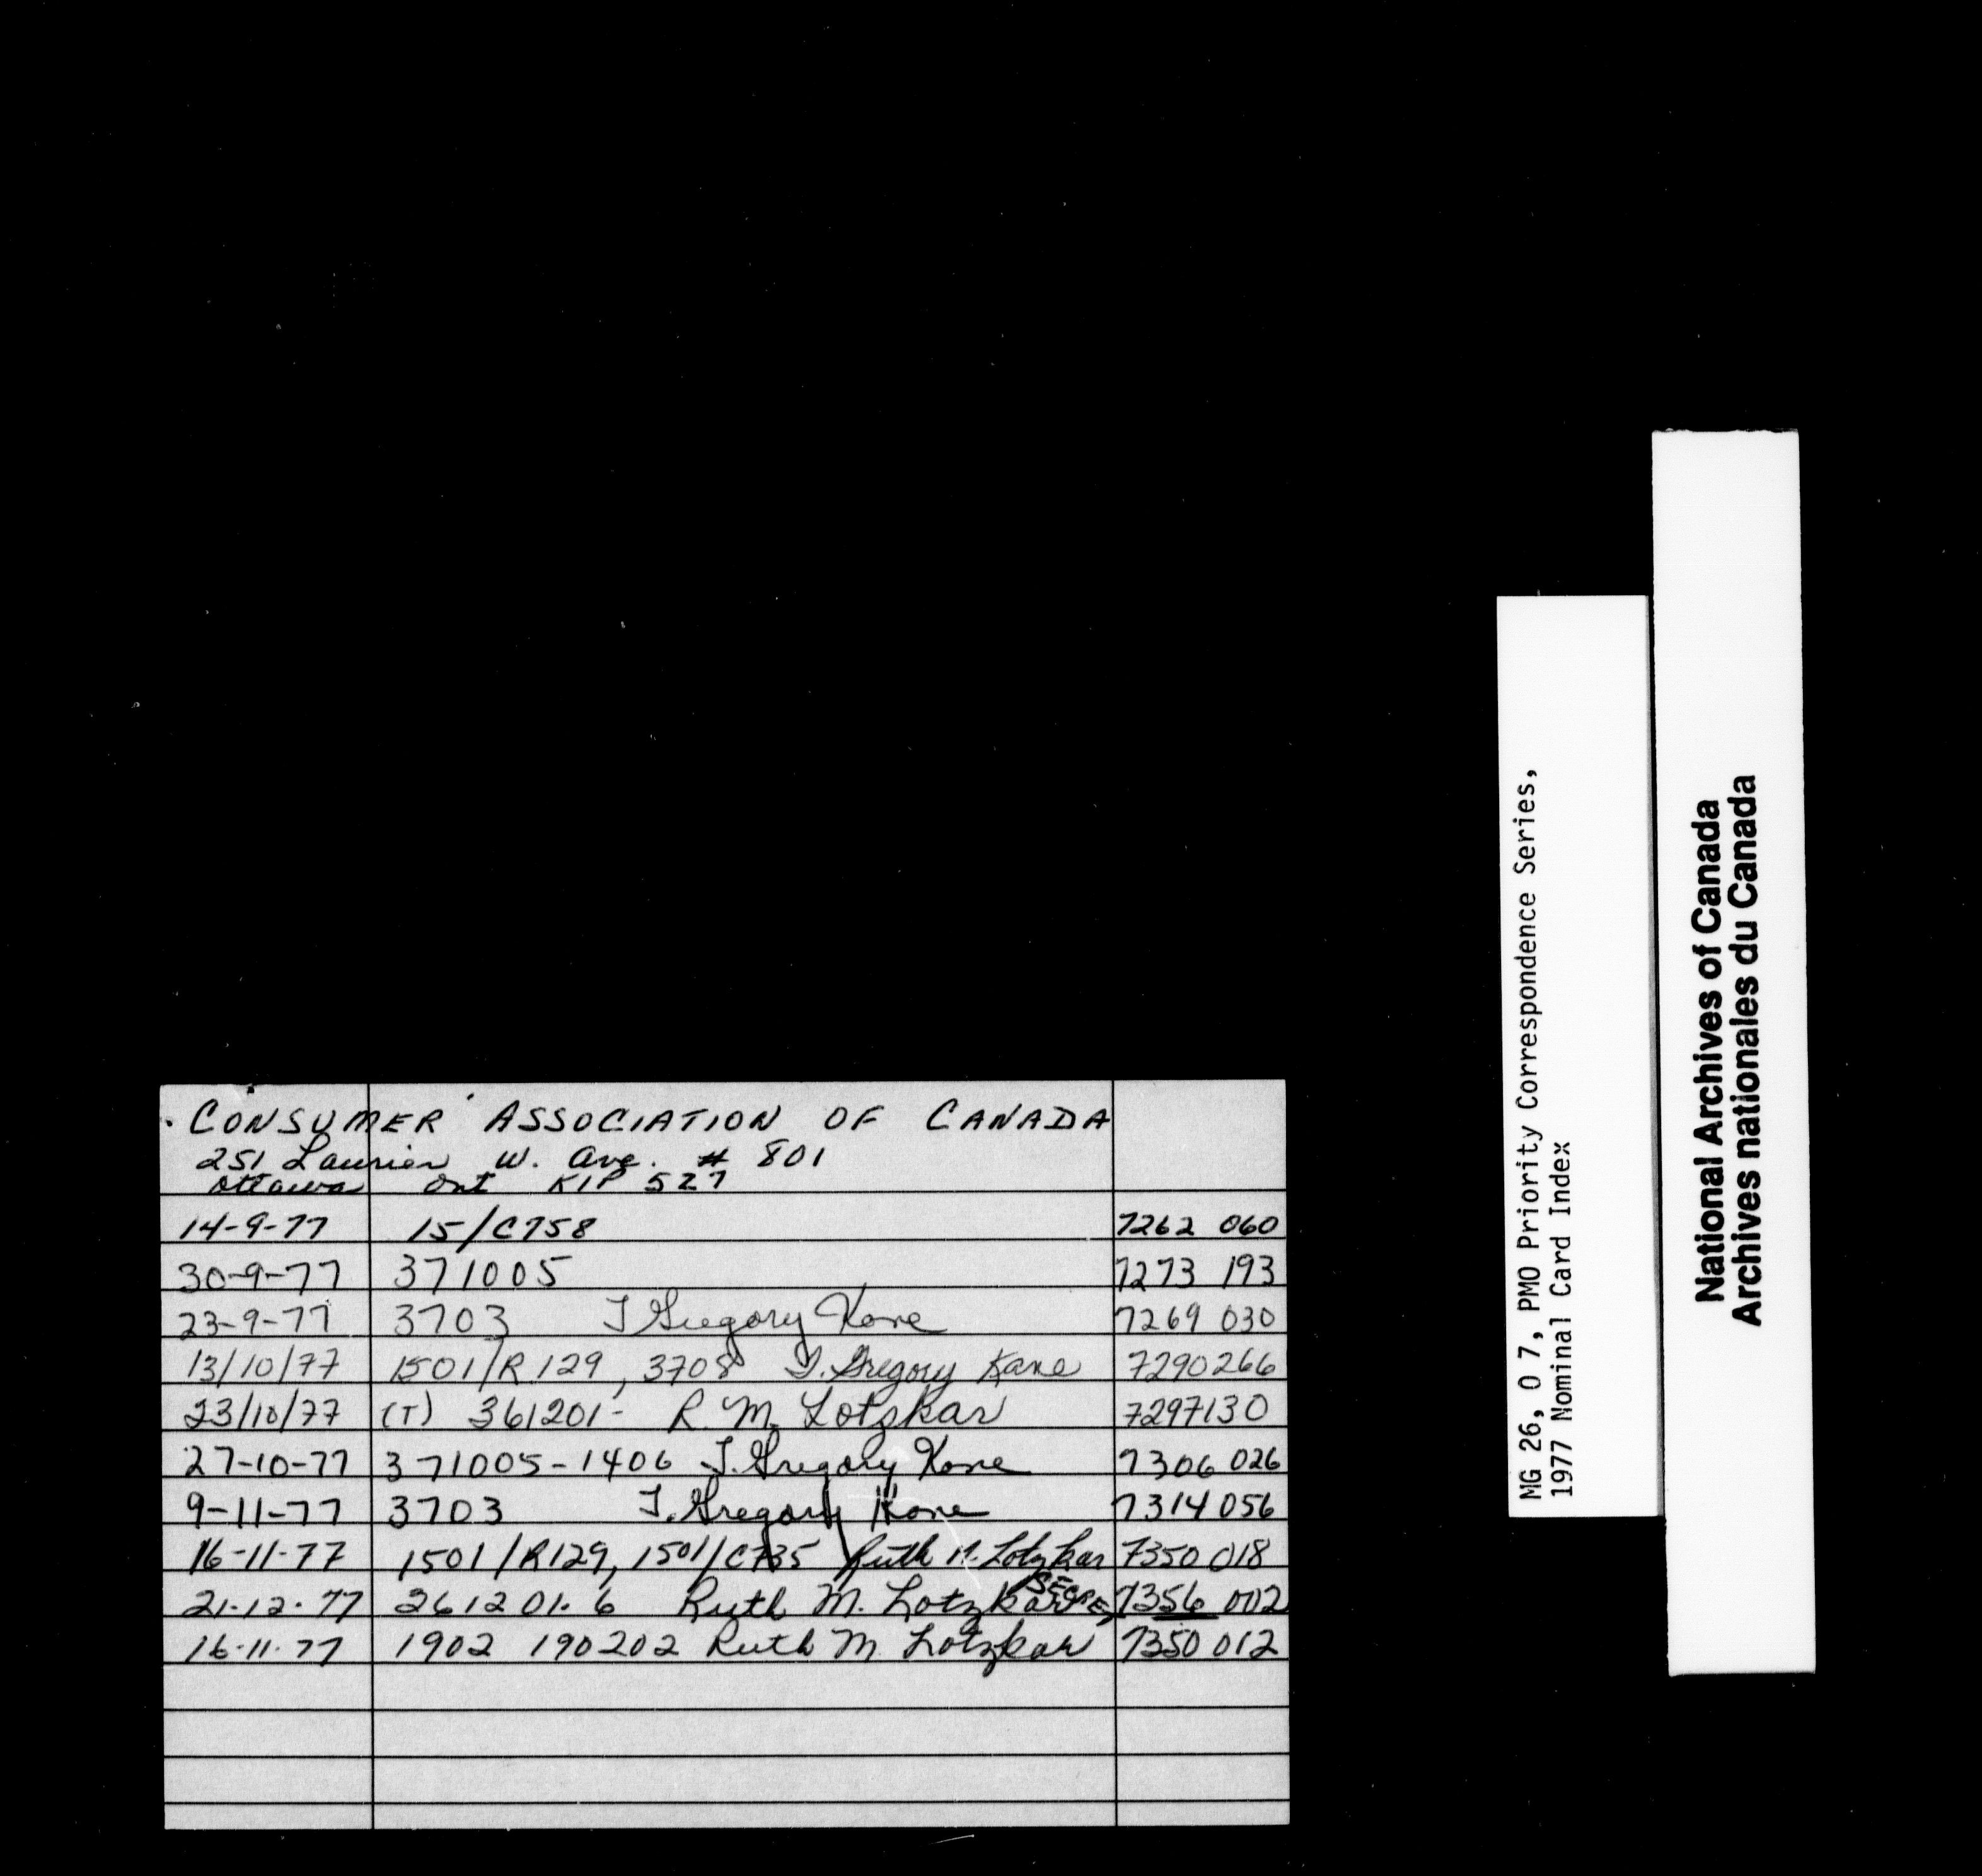 CONSUMER ASSOCIATION OF CANADA
251 Laurier W. Ave. # 801
Ottawa Ont K1P 5Z7
14-9-77 15/C758 7262 060
30-9-77 371005 7273 193
23-9-77 3703 T Gregory Kane 7269 030
13/10/77 1501/R129, 3708 T. Gregory Kane 7290266
23/10/77 (T) 361201- R. M. Lotzkar 7297130
27-10-77 371005-1406 T. Gregory Kane 7306 026
9-11-77 3703 T. Gregory Kane 7314 056
16-11-77 1501/R129, 1501/C735 Ruth M. Lotzkar 7350 018
21-12-77 361201-6 Ruth M. Lotzkar 7356 002
16-11-77 1902 190202 Ruth M Lotzkar 7350 012
MG 26, O 7, PMO Priority Correspondence Series,
1977 Nominal Card Index
National Archives of Canada
Archives nationales du Canada